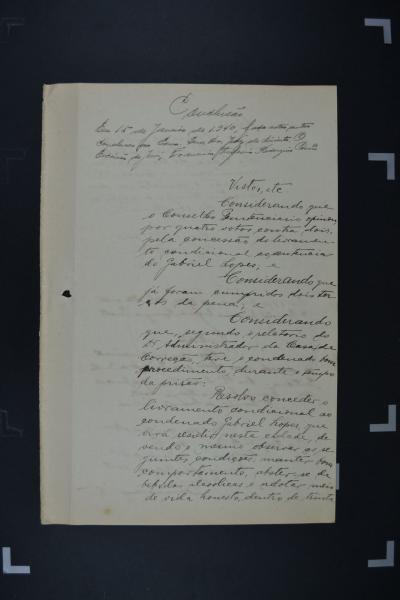 Conclusão
Em 15 de Janeiro de 1940, faço estes autos
conclusos ao Exmo. Snr. Dr. Juiz de Direito. O
Escrivão do Jury,
Vistos, etc
Considerando que
o Conselho Penitenciario opinou
por quatro votos contra dois,
pela concessão do livramen-
to condicional ao sentenciado
Gabriel Lopes, e
Considerando que
já foram cumpridos dois ter
ços da pena; e
Considerando
que, segundo o relatorio do
Dr. Administrador da Casa de
Correção, teve o condenado bom
procedimento, durante o tempo
da prisão:
Resolvo conceder o
livramento condicional ao
condenado Gabriel Lopes, que
irá residir nesta cidade, de
vendo o mesmo observar as se
guintes condições, manter bom
comportamento, abster-se de
bebidas alcoolicas e adotar meio
de vida honesto, dentro de trinta